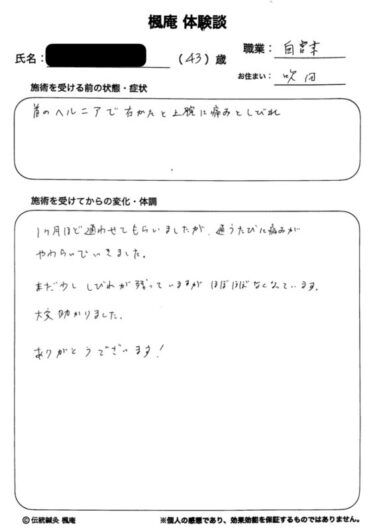 楓庵 体験談
氏名： （43）歳
職業： 自営業
お住まい： 吹田
施術を受ける前の状態・症状
首のヘルニアで右かたと上腕に痛みとしびれ
施術を受けてからの変化・体調
1ヶ月ほど通わせてもらいましたが、通うたびに痛みが
やわらいでいきました。
まだ少ししびれが残っていますがほぼほぼなくなっています。
大変助かりました。
ありがとうございます！
© 伝統鍼灸 楓庵
※個人の感想であり、効果効能を保証するものではありません。